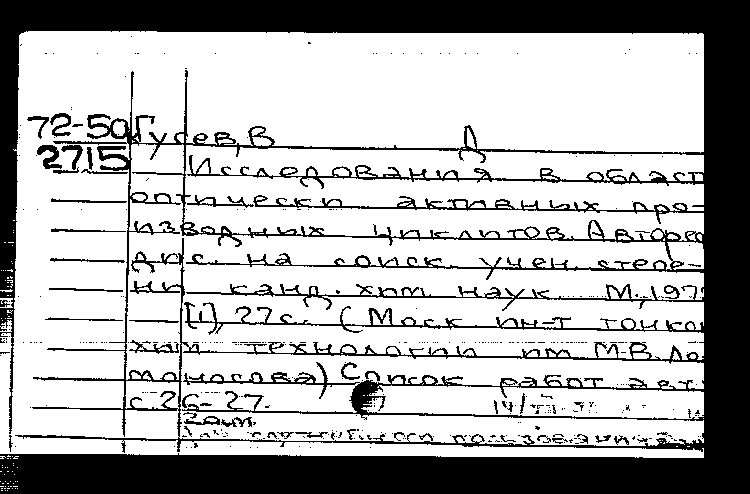 72-50 Гусев, В Д
2715 Исследования в област
оптически активных про-
изводных циклитов. Авторе
дис. на соиск. учен. степе-
ни канд. хим. наук. М., 197
[1], 27 с. (Моск ин-т тонко
хим технологии им М.В. Ло-
моносова) Список работ авт
с. 26-27.
2 экт.
пользования